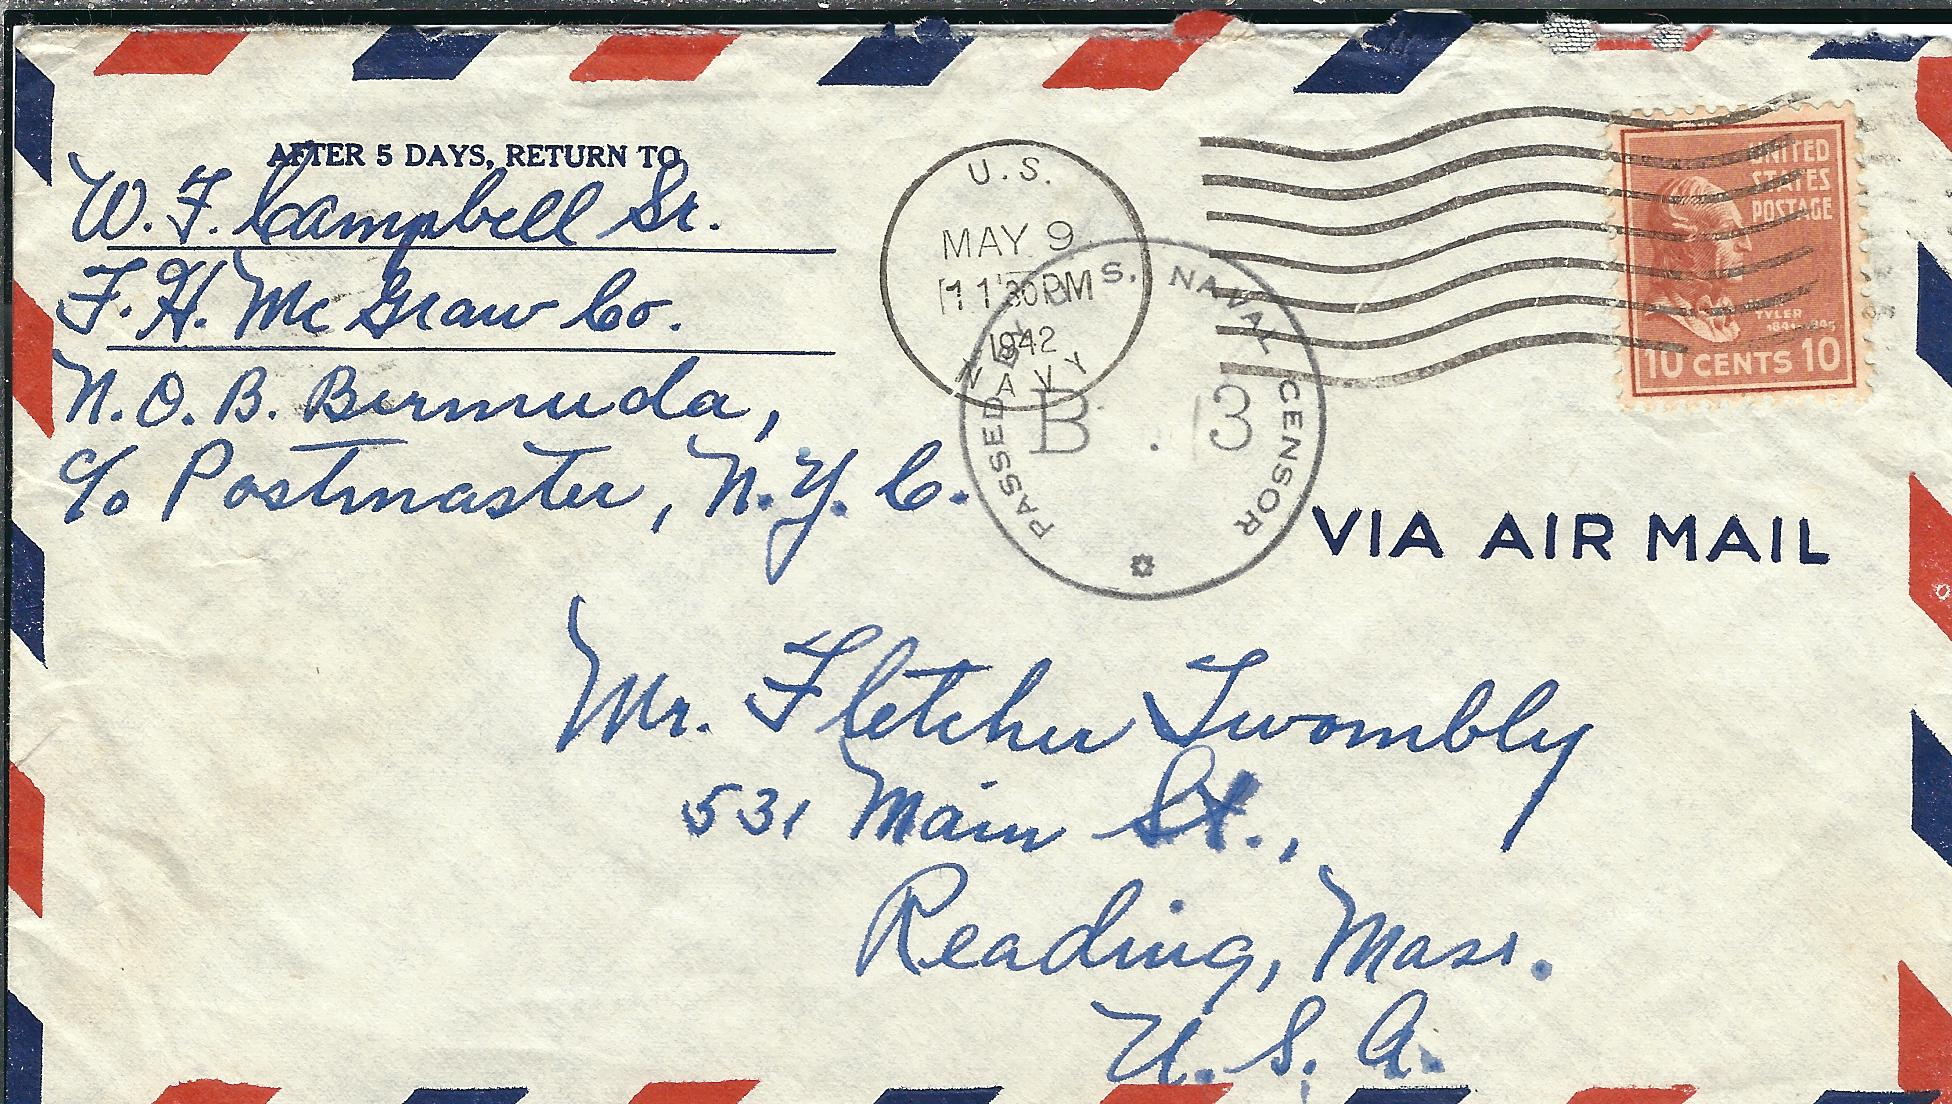 AFTER 5 DAYS, RETURN TO
W. F. Campbell Sr.
F. H. McGraw Co.
N. O. B. Bermuda,
c/o Postmaster, N. Y. C.
U.S.
MAY 9
11 30 PM
1942
NAVY
PASSED BY U. S. NAVAL CENSOR
B. 13
UNITED
STATES
POSTAGE
TYLER
1841-1845
10 CENTS 10
VIA AIR MAIL
Mr. Fletcher Twombly
531 Main St.,
Reading, Mass.
U. S. A.